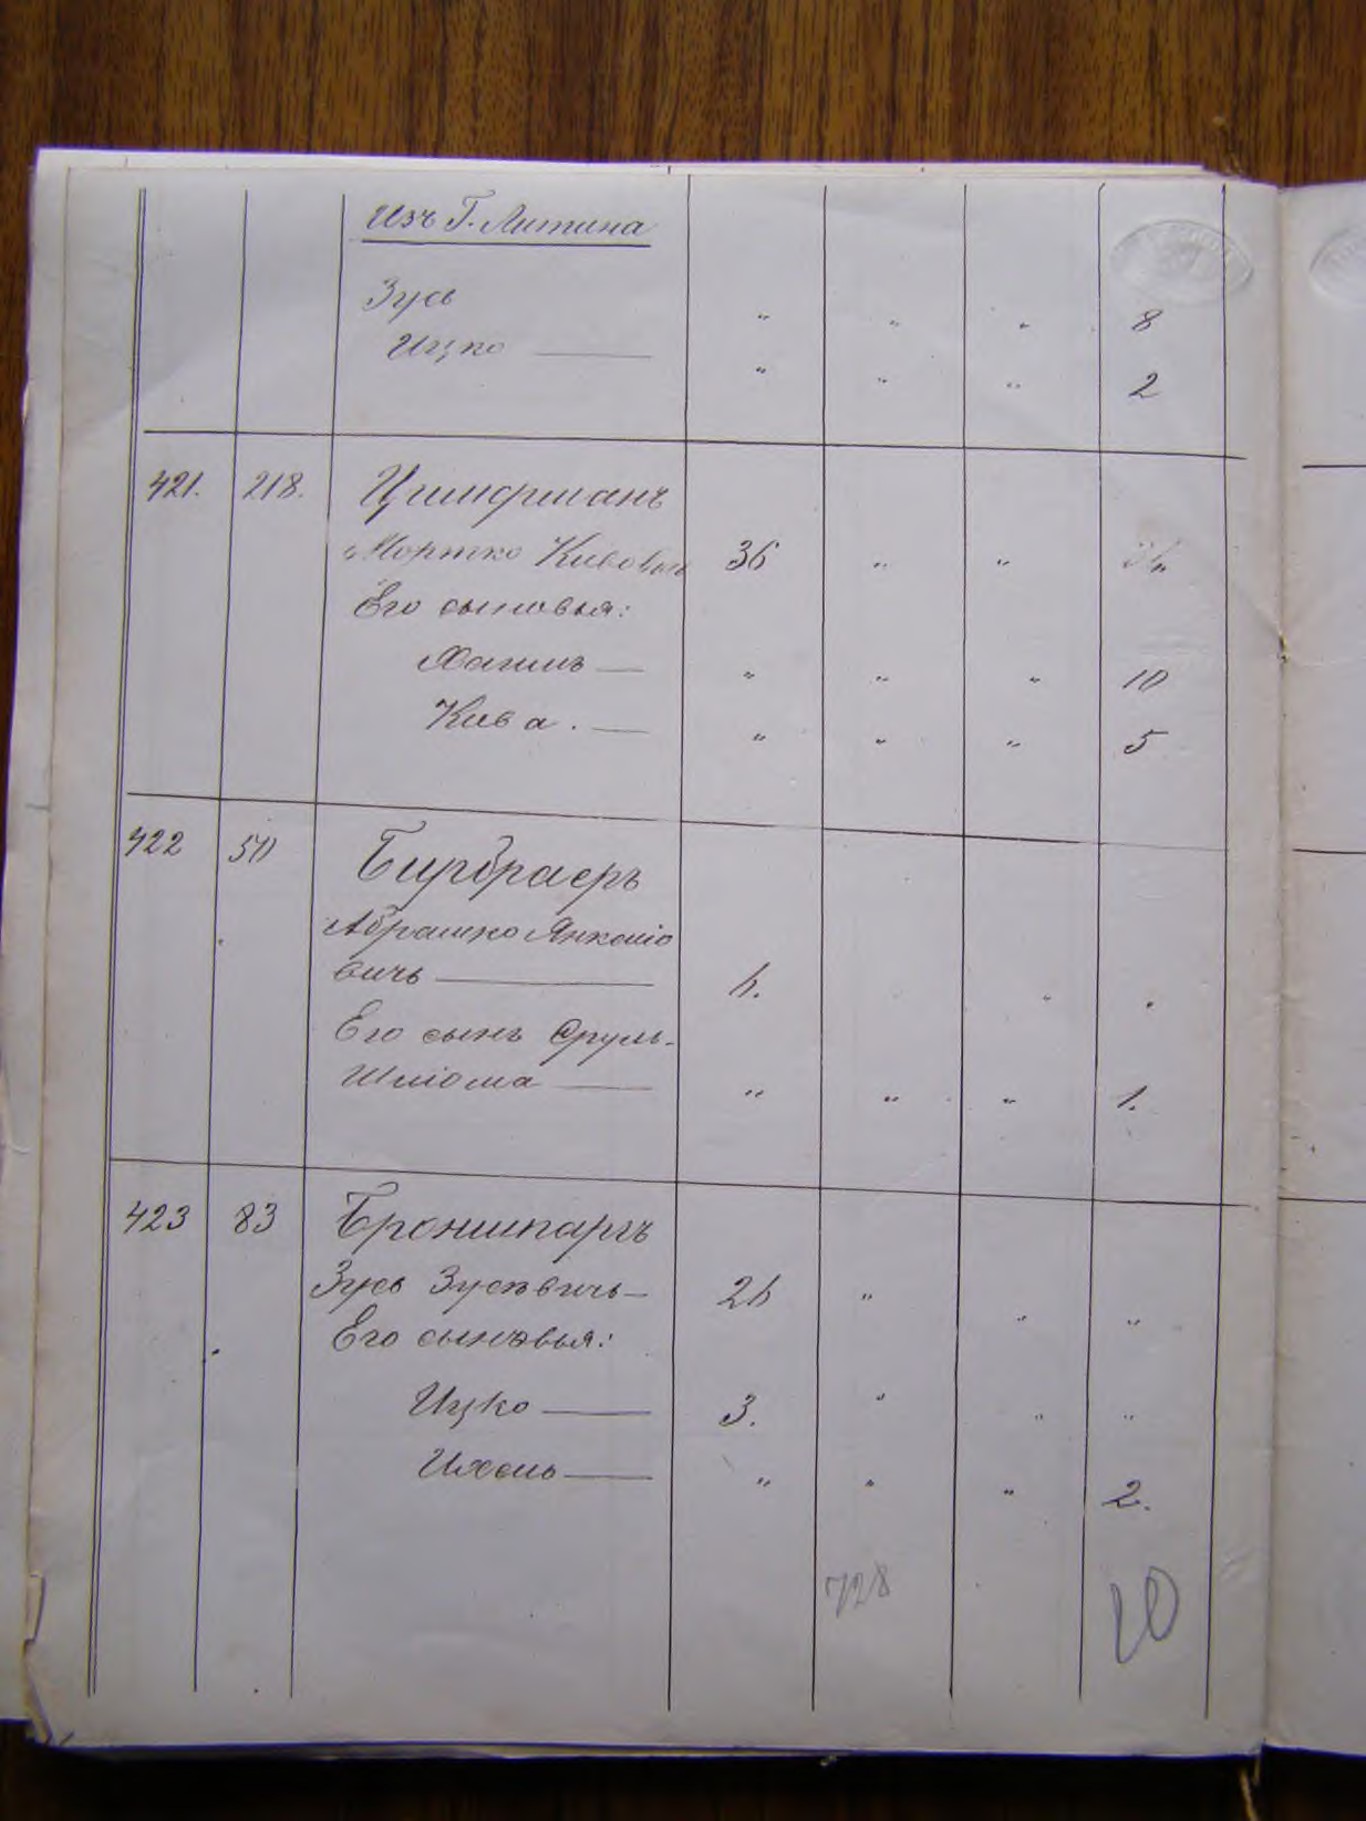 Изъ Г. Литина
Зусь " " " 8
Ицко — " " " 2
421. 218. Цимерманъ
Мортко Кивовичъ 36 " " "
Его сыновья:
Хаимъ — " " " 10
Кива. — " " " 5
422 50 Бирбраеръ
Абрашко Янкелiо
вичъ — 1.
Его сынъ Сруль-
Шлiома — " " " 1.
423 83 Бронштаръ
Зусь Зусевичъ — 21 " " "
Его сыновья:
Ицко — 3. " " "
Ихель — " " " 2.
728 20